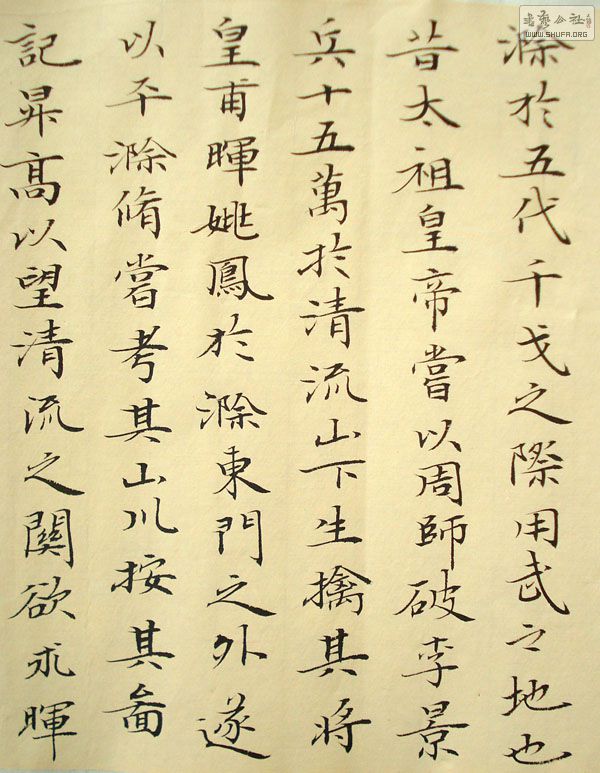 書藝公社
WWW.SHUFA.ORG
滁於五代干戈之際用武之地也
昔太祖皇帝嘗以周師破李景
兵十五萬於清流山下生擒其將
皇甫暉姚鳳於滁東門之外遂
以平滁脩嘗考其山川按其圖
記昇高以望清流之關欲求暉